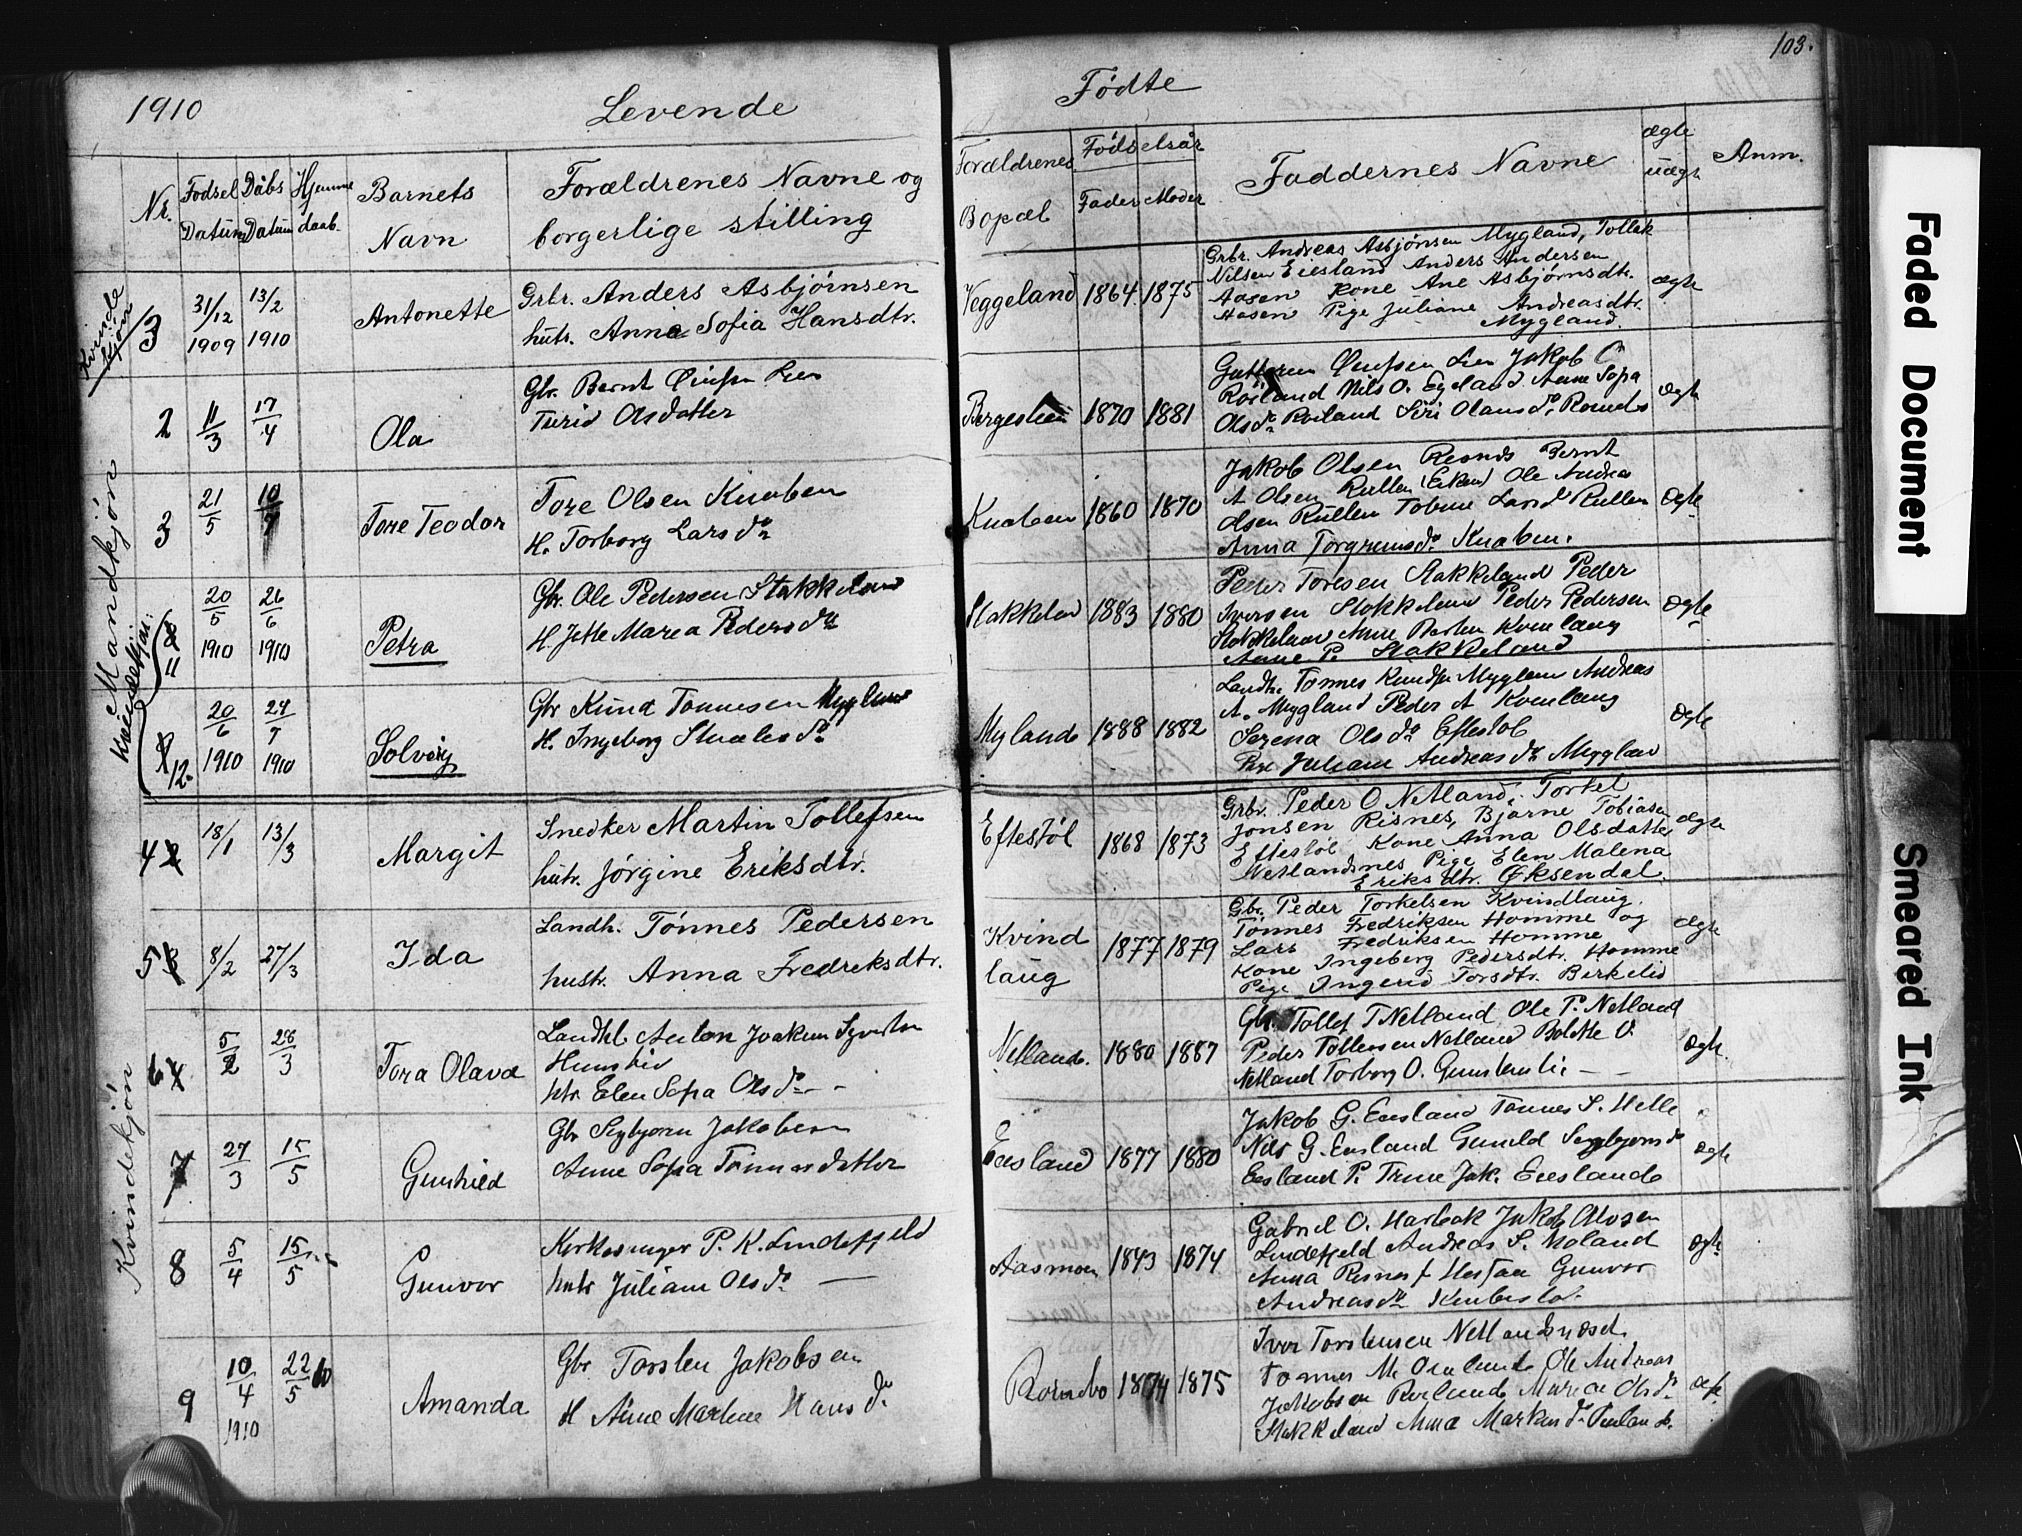 1910 Levende Fødte 103.
Nr. Fødsel Datum Dåbs Datum Hjemme daab. Barnets Navn Forældrenes Navne og borgerlige stilling
Forældrenes Bopæl Fødselsår Fader Moder Faddernes Navne ægte uægt Anm.
Kvindekjøn
3 31/12 1909 13/2 1910 Antonette
Grbr. Anders Asbjørnsen
hutr. Anne Sofia Hansdtr.
Veggeland 1864 1875
Grbr. Andreas Asbjønsen Mygland, Tollak
Nilsen Eiesland Anders Andersen
Aasen Kone Ane Asbjørnsdtr.
Aasen Pige Juliane Andreasdtr.
Mygland.
ægte
Mandkjøn
2 11/3 17/4 Ola
Gbr. Bernt
Turid Olsdatter
1870 1881
Lien Jakob O
Røiland Nils O. Egeland Anne Sofia
Olsdr Røiland Siri Olausdr.
ægte
3 21/5 10/7 Tore Teodor
Tore Olsen Knaben
H. Torborg Larsdr
Knaben 1860 1870
Jakob Olsen Bernt
A Olsen Rullen Ole Andreas
Olsen Rullen Rullen
Anna Torgrimsdr. Knaben.
ægte
Kvindekjøn:
11 20/5 1910 26/6 1910 Petra
Gbr. Ole Pedersen Stakkeland
H Jette Marea Pedersdtr
Stakkelan 1883 1880
Peder Toresen Stakkeland Peder
Iversen Stokkeland Peder Pedersen
Stokkeland Anne Berten Kvenlaug
Anne P. Stakkeland
ægte
12. 20/6 1910 24/7 1910 Solveig
Gbr Knud Tønnesen Mygland
H. Ingeborg Staalesdr
Myland 1888 1882
Landh. Tønnes Knuds Mygland Andreas
A. Mygland Peder A Kvenlaug
Serena Olsdr Eftestøl
Pige Juliane Andreasdr Mygglan
ægte
Kvindekjøn
4 18/1 13/3 Margit
Snedker Martin Tollefsen
hutr. Jørgine Eriksdtr.
Eftestøl 1868 1873
Grbr. Peder O Netland, Torkel
Jonsen Risnes, Bjarne Tobiasen
Eftestøl Kone Anna Olsdatter
Netlandsnes Pige Elen Malena
Eriksdtr. Øksendal.
ægte
5 8/2 27/3 Ida
Landh. Tønnes Pedersen
hustr. Anna Fredriksdtr.
Kvind
laug
1877 1879
Gbr. Peder Torkelsen Kvindlaug.
Tønnes Fredriksen Homme og
Lars Fredriksen Homme
Kone Ingeborg Pedersdtr. Homme
Pige Ingerid Torsdtr. Birkelid
ægte
6 5/2 28/3 Tora Olava
Landhl. Anton Joakim
htr Elen Sofia Olsdr
Netland. 1880 1887
Gbr Tollef T Netland Ole P. Netland
Peder Tollevsen Netland Bolette O.
Netland Torborg O.
ægte.
7 27/3 15/5 Gunhild
Gbr Sigbjørn Jakobsen
Anne Sofia Tønnesdatter
Eiesland 1877 1880
Jakob G. Eiesland Tønnes S. Helle
Nils G. Eiesland Gunild Sigbjørnsdr
Eiesland P. Trine Jak. Eieslande
ægte
8 5/4 15/5 Gunvor
Kirkesanger P. K. Lindefjeld
hutr Juliane Olsdr
Aasmon 1843 1874
Gabriel O. Jakob
Lindefjeld Andreas S. Moland
Anna Gunvor
Andreasdtr
ægte
9 10/4 1910 22/5 10 Amanda
Gbr. Torsten Jakobsen
H Anne Martine Hansdr
1874 1875
Iver Torstensen
Tønnes M. Ole Andreas
Jakobsen Røilande Maria Olsdr
Stakkeland Anna
Faded Document
Smeared Ink